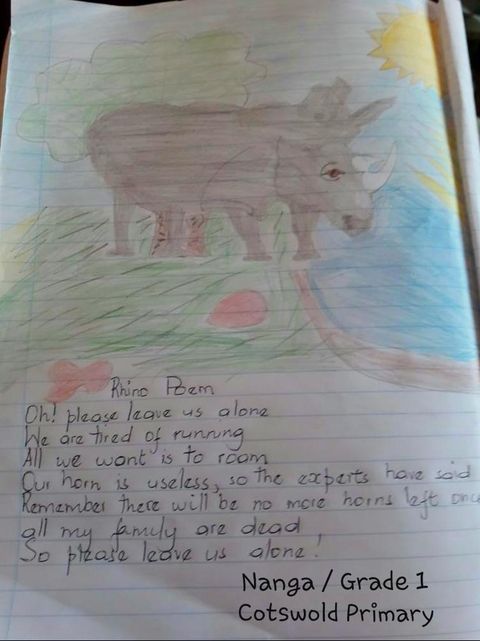 Rhino Poem
Oh! please leave us alone
We are tired of running
All we want is to roam
Our horn is useless, so the experts have said
Remember there will be no more horns left once
all my family are dead,
So please leave us alone!
Nanga / Grade 1
Cotswold Primary